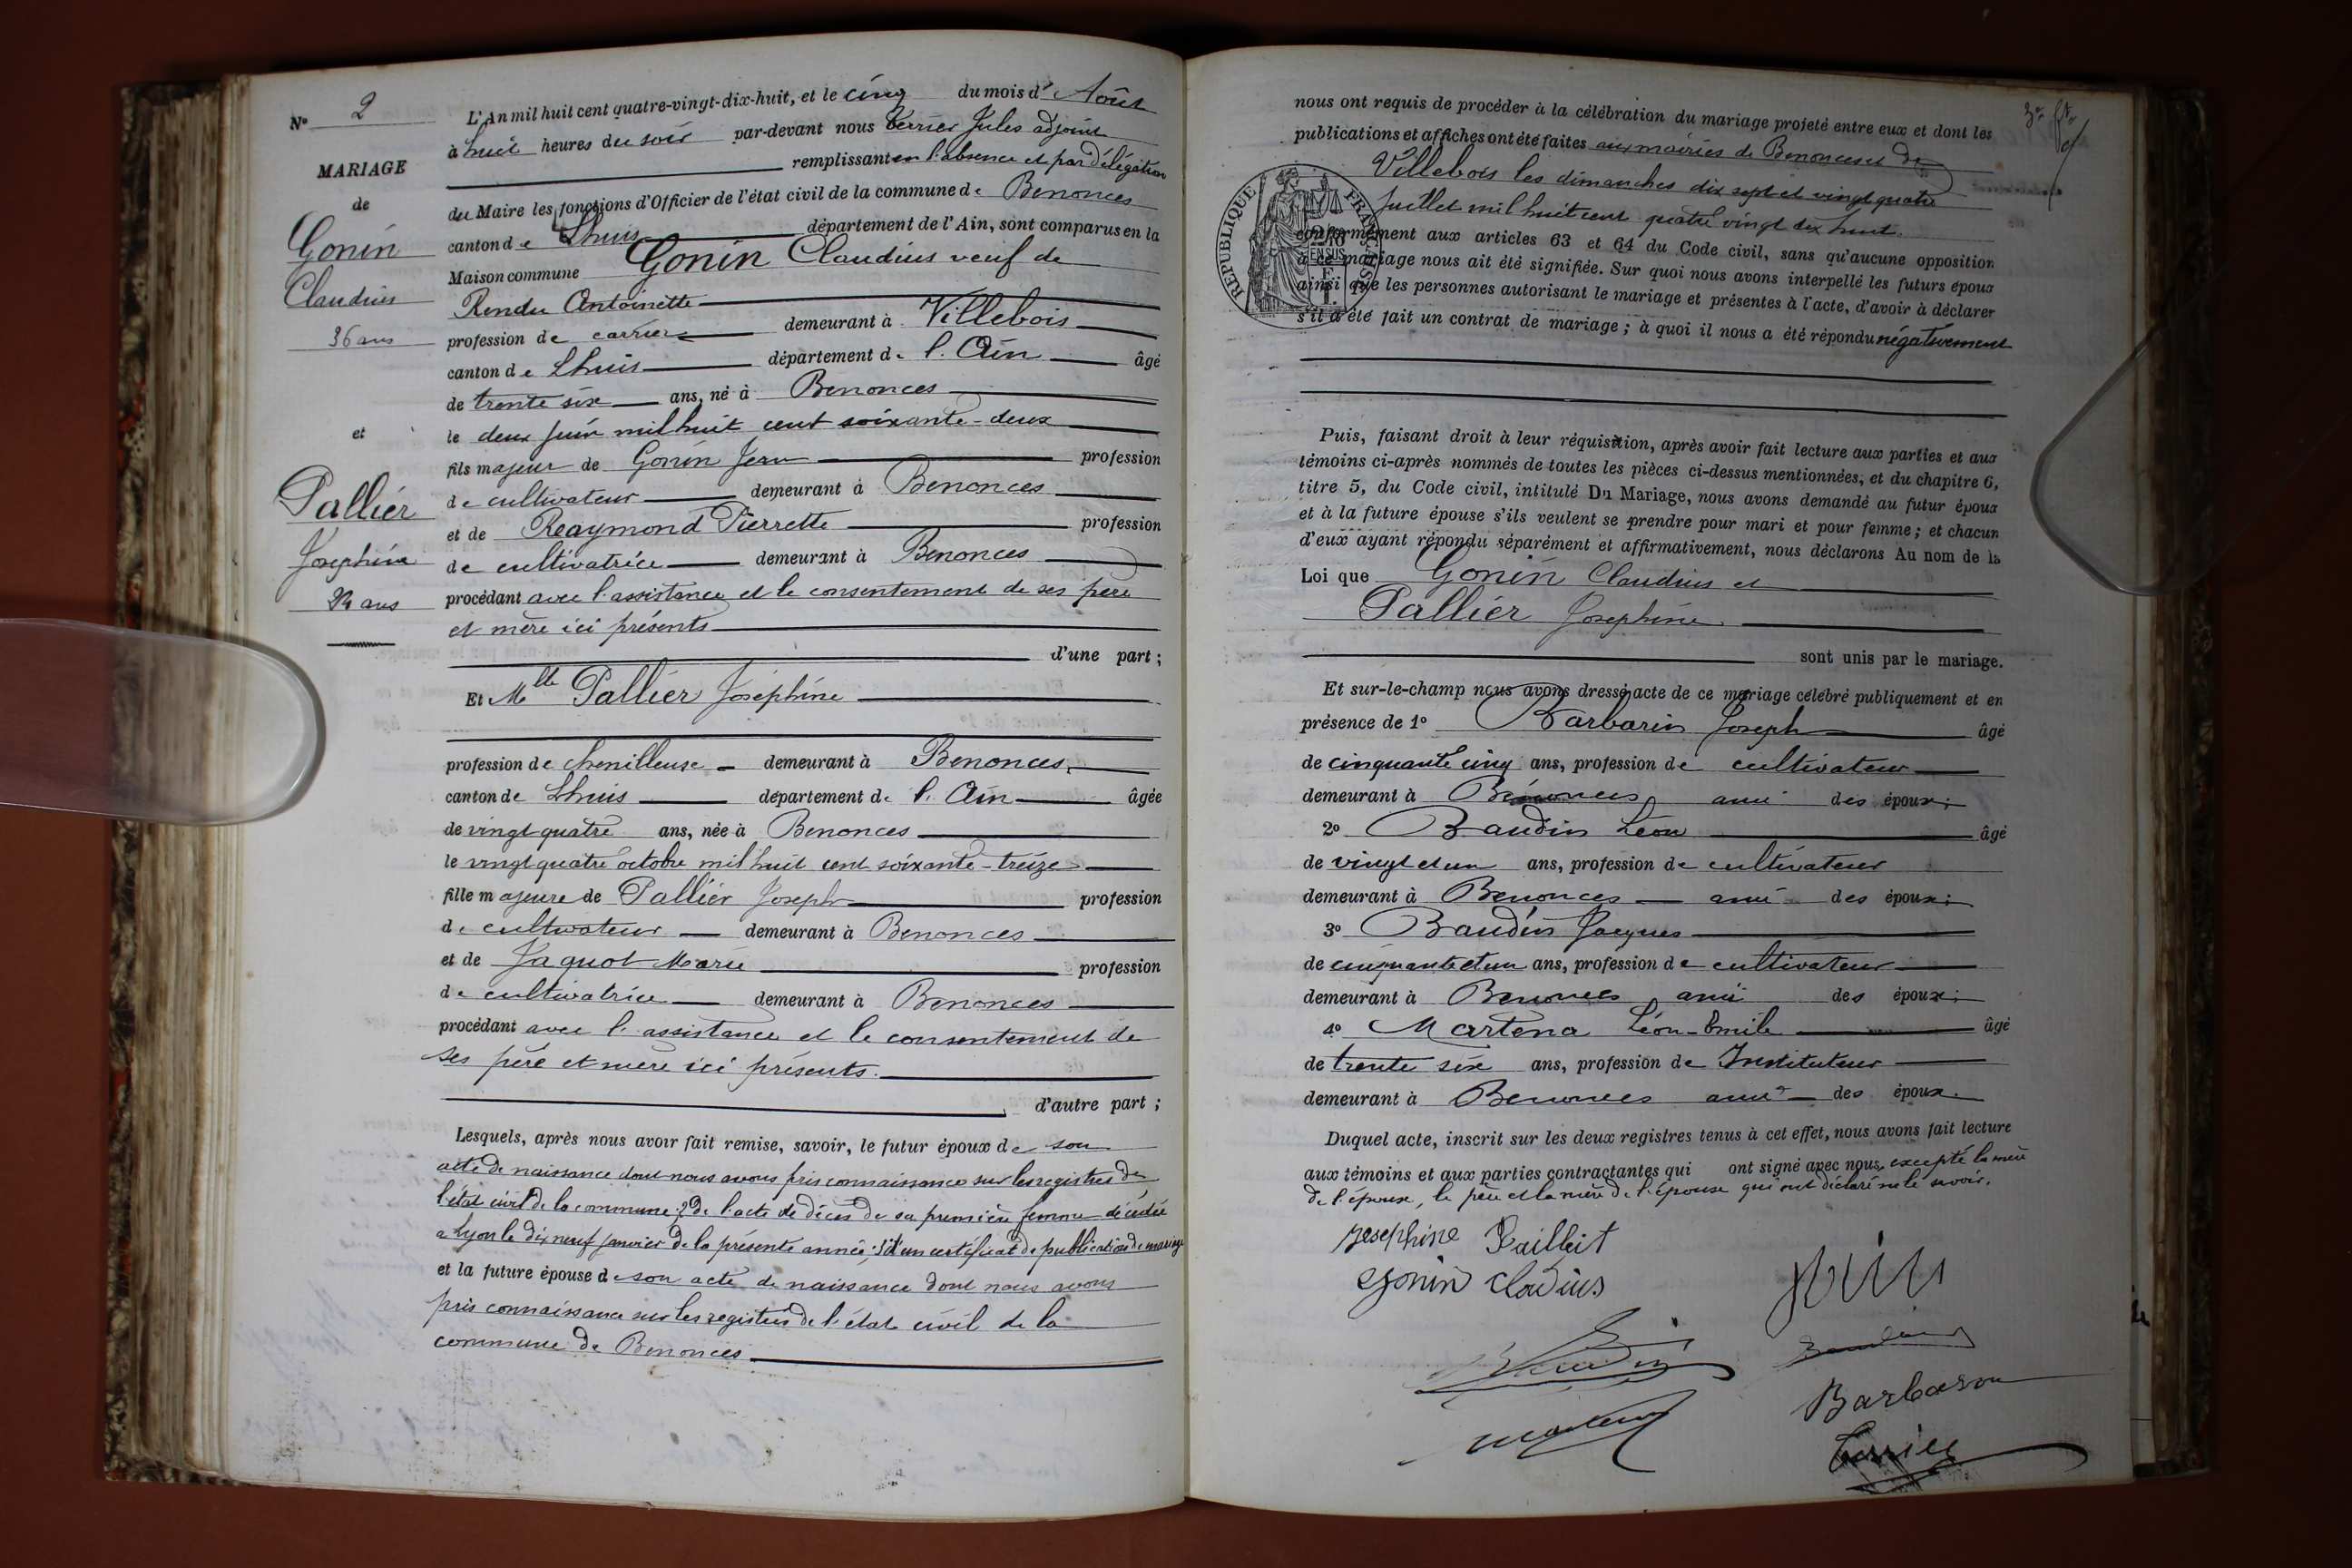 N° 2
MARIAGE
de
Gonin
Claudius
36 ans
et
Pallier
Josephine
24 ans
L'An mil huit cent quatre-vingt-dix-huit, et le cinq du mois d' Août
à huit heures du soir par-devant nous Terrier Jules adjoint
remplissant en l'absence et par délégation
du Maire les fonctions d'Officier de l'état civil de la commune de Benonces
canton de Lhuis département de l'Ain, sont comparus en la
Maison commune Gonin Claudius veuf de
Rendu Antoinette
profession de carrier demeurant à Villebois
canton de Lhuis département de l'Ain âgé
de trente six ans, né à Benonces
le deux juin mil huit cent soixante-deux
fils majeur de Gonin Jean profession
de cultivateur demeurant à Benonces
et de Reaymond Pierrette profession
de cultivatrice demeurant à Benonces
procédant avec l'assistance et le consentement de ses père
et mère ici présents
d'une part ;
Et Mlle Pallier Joséphine
profession de chenilleuse demeurant à Benonces,
canton de Lhuis département de l'Ain âgée
de vingt quatre ans, née à Benonces
le vingt quatre octobre mil huit cent soixante-treize
fille majeure de Pallier Joseph profession
de cultivateur demeurant à Benonces
et de Jaquot Marie profession
de cultivatrice demeurant à Benonces
procédant avec l'assistance et le consentement de
ses père et mère ici présents.
d'autre part ;
Lesquels, après nous avoir fait remise, savoir, le futur époux de son
acte de naissance dont nous avons pris connaissance sur les registres de
l'état civil de la commune ; 2° de l'acte de décès de sa première femme décédée
à Lyon le dix neuf janvier de la présente année ; 3° d'un certificat de publication de mariage
et la future épouse de son acte de naissance dont nous avons
pris connaissance sur les registres de l'état civil de la
commune de Benonces
nous ont requis de procéder à la célébration du mariage projeté entre eux et dont les
publications et affiches ont été faites aux mairies de Benonces et de
Villebois les dimanches dix sept et vingt quatre
Juillet mil huit cent quatre vingt dix huit.
conformément aux articles 63 et 64 du Code civil, sans qu'aucune opposition
à ce mariage nous ait été signifiée. Sur quoi nous avons interpellé les futurs époux
ainsi que les personnes autorisant le mariage et présentes à l'acte, d'avoir à déclarer
s'il a été fait un contrat de mariage ; à quoi il nous a été répondu négativement
REPUBLIQUE FRANÇAISE
Puis, faisant droit à leur réquisition, après avoir fait lecture aux parties et aux
témoins ci-après nommés de toutes les pièces ci-dessus mentionnées, et du chapitre 6,
titre 5, du Code civil, intitulé Du Mariage, nous avons demandé au futur époux
et à la future épouse s'ils veulent se prendre pour mari et pour femme ; et chacun
d'eux ayant répondu séparément et affirmativement, nous déclarons Au nom de la
Loi que Gonin Claudius et
Pallier Josephine
sont unis par le mariage.
Et sur-le-champ nous avons dressé acte de ce mariage célébré publiquement et en
présence de 1° Barbarin Joseph âgé
de cinquante cinq ans, profession de cultivateur
demeurant à Benonces ami des époux ;
2° Baudin Léon âgé
de vingt et un ans, profession de cultivateur
demeurant à Benonces ami des époux ;
3° Baudin Jacques
de cinquante et un ans, profession de cultivateur
demeurant à Benonces ami des époux ;
4° Martena Léon-Emile âgé
de trente six ans, profession de Instituteur
demeurant à Benonces ami des époux.
Duquel acte, inscrit sur les deux registres tenus à cet effet, nous avons fait lecture
aux témoins et aux parties contractantes qui ont signé avec nous, excepté la mère
de l'époux, le père et la mère de l'épouse qui ont déclaré ne le savoir.
Josephine Pailleit
Gonin Clodius
Barbarin
Terrier